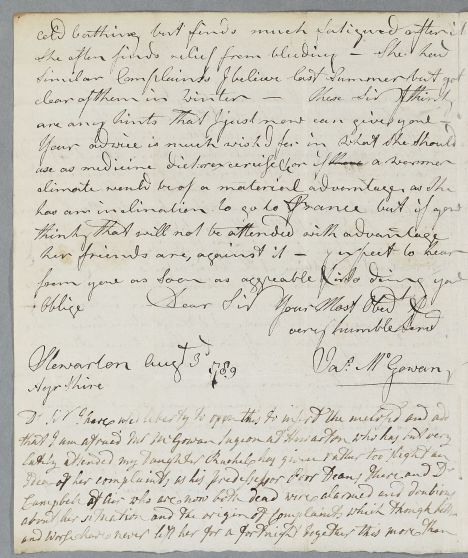 cold bathing but finds much fatigued after it
She often finds relief from bleeding — She had
Similar Complaints I believe last Summer but got
clear of them in Winter — these Sir I think
are any hints that I just now can give you —
Your advice is much wish'd for in what She Should
use as medicine diet or exercise or if a warmer
climate would be of a material advantage as She
has an inclination to go to France but if you
think that will not be attended with advantage
her friends are against it — I expect to hear
from you as Soon as agreeable doing you
Oblige Dear Sir Your Most Obed.t &
very humble Serv.t
Stewarton Aug.t 3.d 1789
Ayr Shire Ja.s M.cGowan
D.r Sir I have liberty to open this to and add
that I am afraid Mr McGowan Surgeon at Stewarton who has but very
lately attended my Daughter Rachel, has given rather too Slight an
Idea of her complaints, as his predesessor Poor Deans there and D.r
Campbell at Ayr who are now both dead were alarmed and doubtious
about her situation and the origin of complaint, which though better
and worse have never left her for a fortnight together this more than